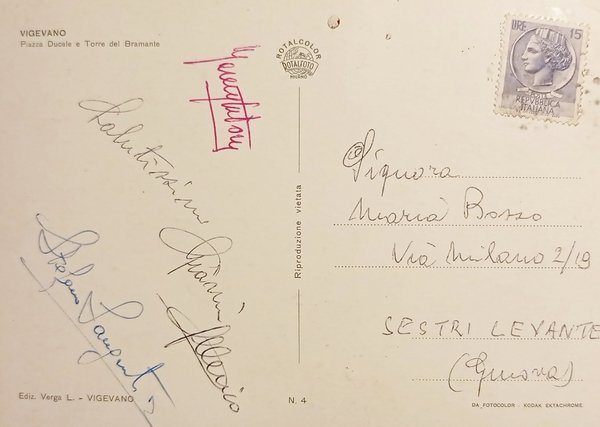 VIGEVANO
Piazza Ducale e Torre del Bramante
ROTALCOLOR
ROTALFOTO
MILANO
LIRE 15
POSTE
REPVBBLICA
ITALIANA
Salutissimi
Gianni
Stefano
Signora
Maria Bozzo
Via Milano 2/19
SESTRI LEVANTE
(Genova)
Riproduzione vietata
Ediz. Verga L. - VIGEVANO
N. 4
DA FOTOCOLOR - KODAK EKTACHROME